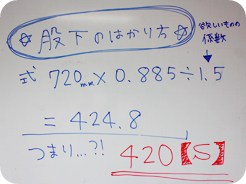 ☆股下のはかり方☆
欲しいものの
係数
式 720mm×0.885÷1.5
= 424.8
つまり...?! 420【S】